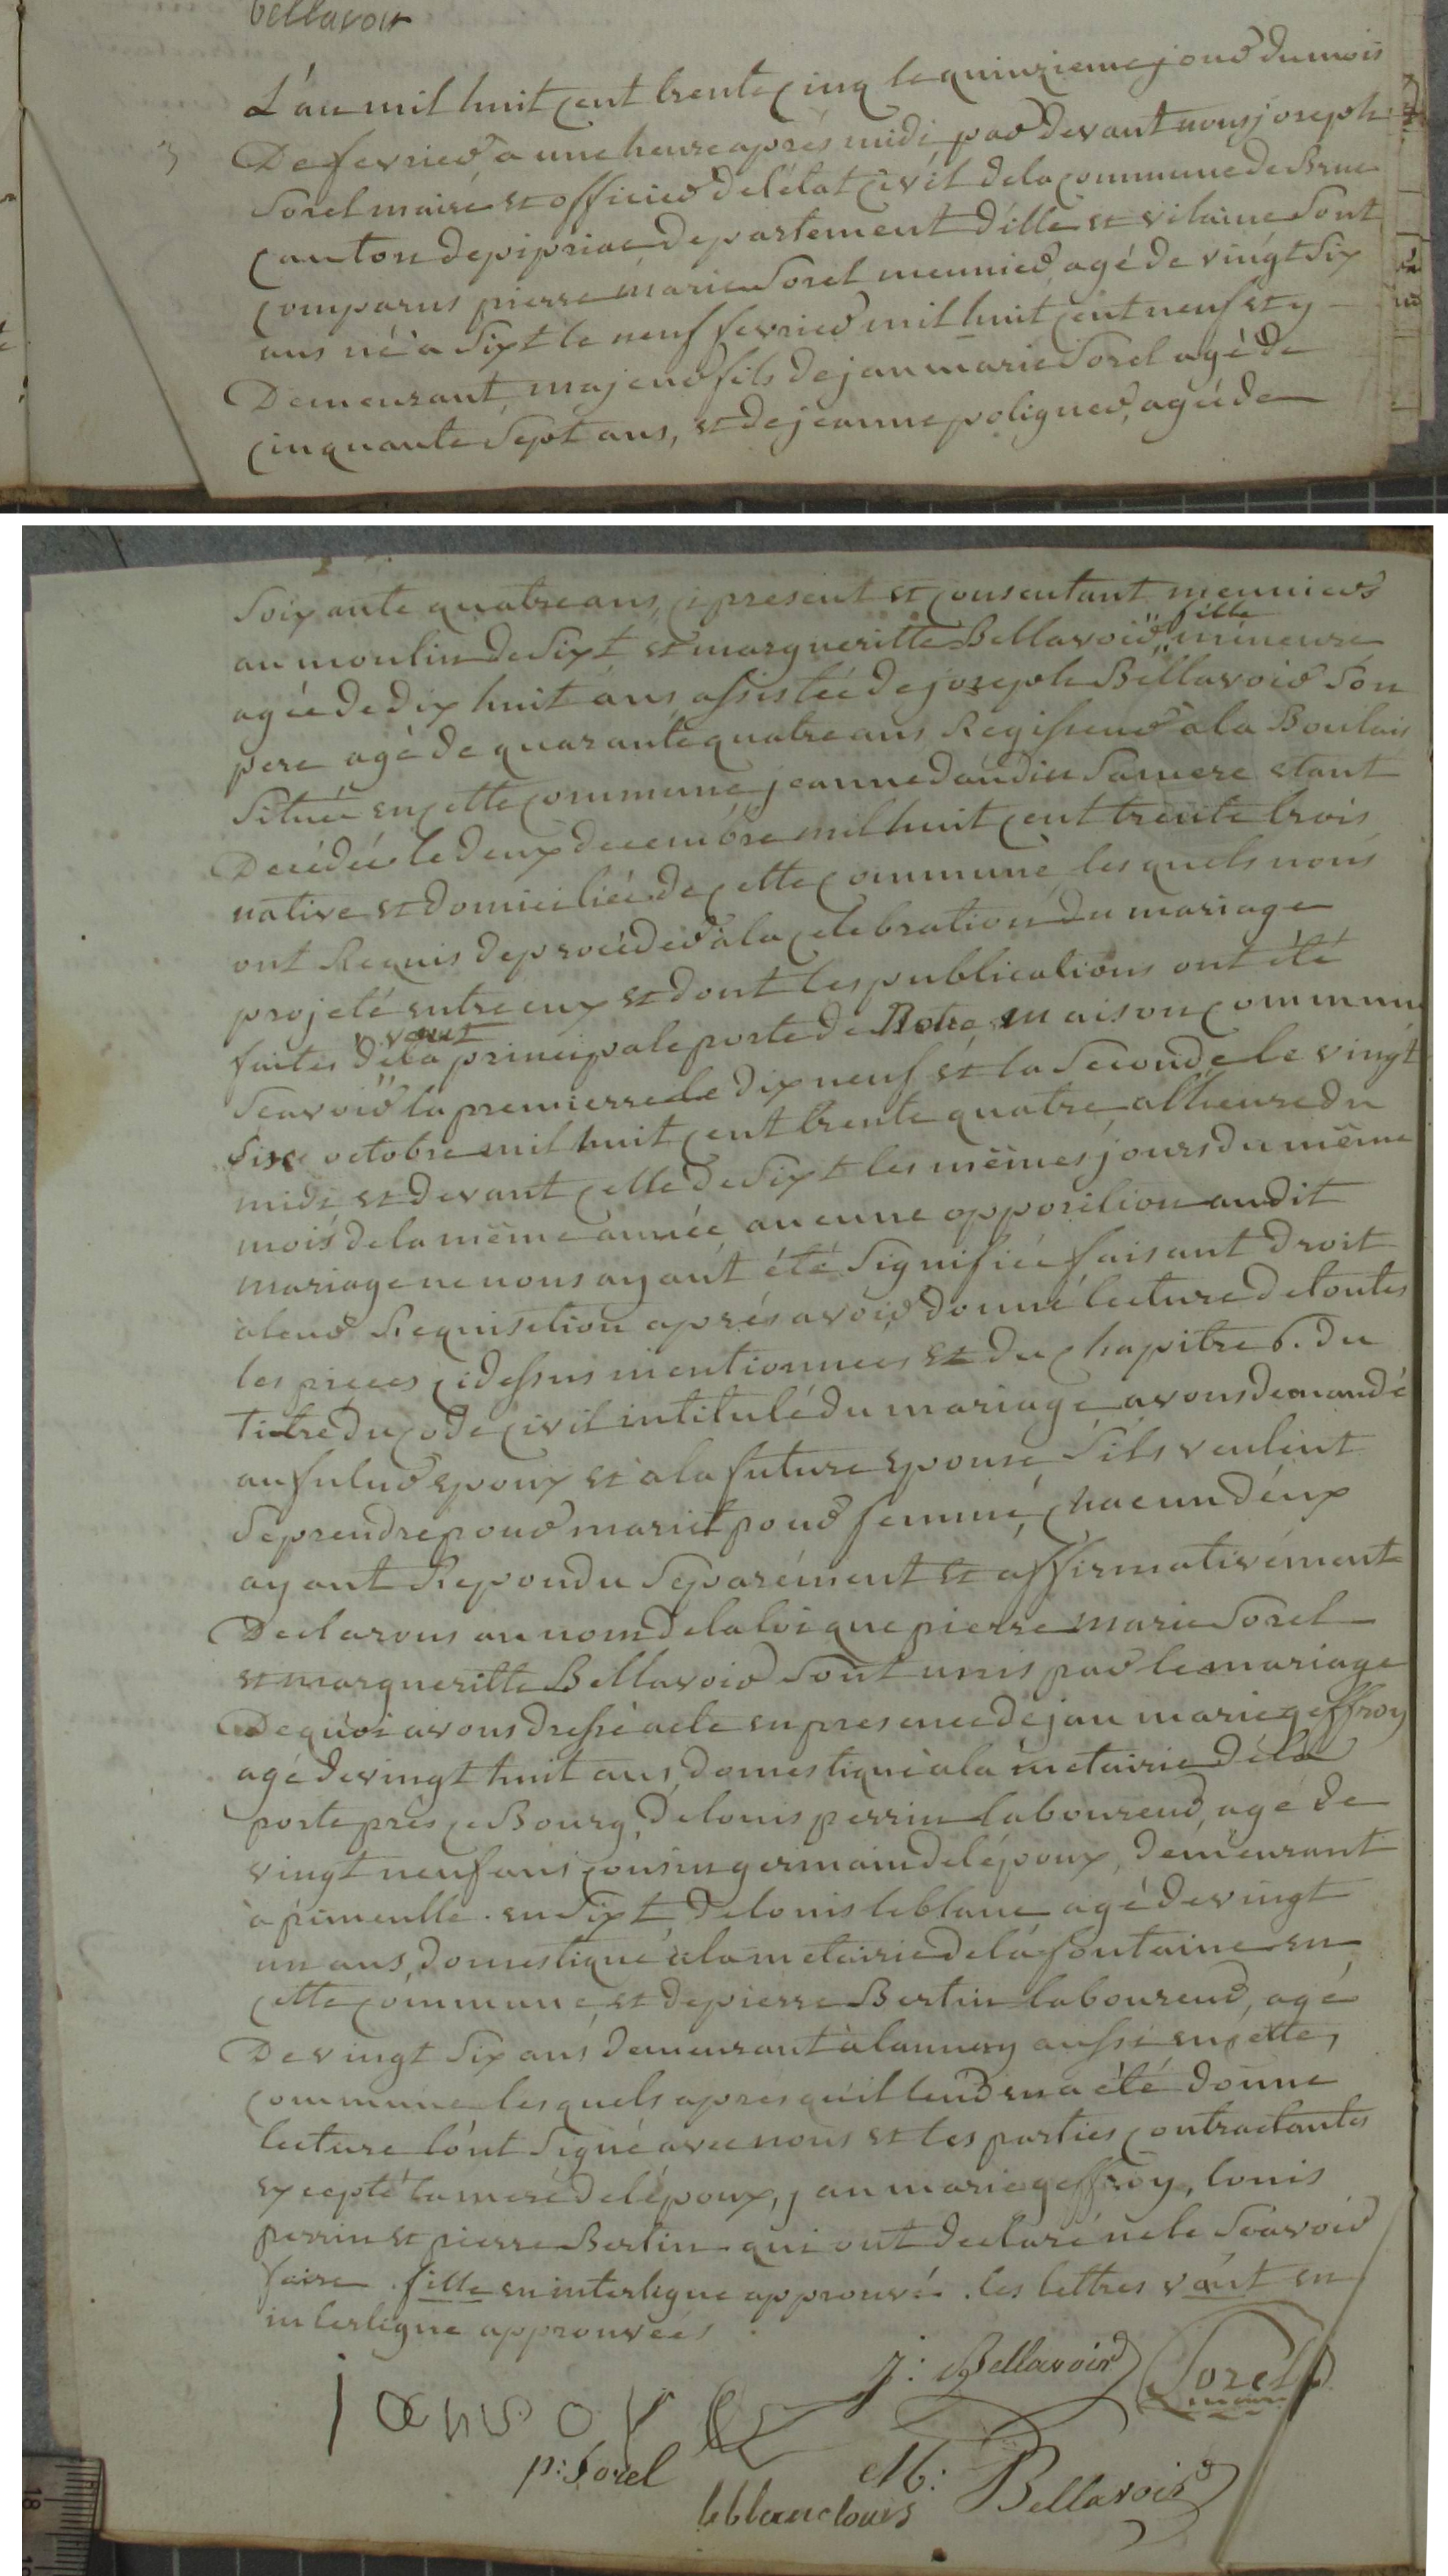 bellavoir
L'an mil huit cent trente cinq le quinzieme jour du mois
3
De fevrier a une heure aprés midi par devant nous joseph
Sorel maire et officier de létat civil de la commune de Bruc
canton de pipriac departement d'ille et vilaine Sont
comparus pierre marie Sorel meunier, agé de vingt Six
ans né a Sixt le neuf fevrier mil huit cent neuf et y
Demeurant, majeur fils de jan marie Sorel agé de
cinquante Sept ans, et de jeanne poligner, agée de
Soixante quatre ans, ci present et consentant meuniers
fille
au moulin de Sixt et margueritte Bellavoir, mineure
agée de dix huit ans, assistée de joseph Bellavoir Son
pere agé de quarante quatre ans Regisseur a la Boulais
Située en cette commune, jeanne daudin Sa mere etant
Decédée le deux decembre mil huit cent trente trois
native et domiciliée de cette commune, les quels nous
ont Requis de procéder a la celebration du mariage
projeté entre eux et dont les publications ont été
vant
faites de la principale porte de Notre maison commune
Scavoir la premierre le dix neuf et la Seconde le vingt
Six octobre mil huit cent trente quatre, a l'heure du
midi et devant celle de Sixt les mêmes jours du même
mois de la même année, aucune opposition au dit
mariage ne nous ayant été Signifiée faisant droit
a leur Requisition aprés avoir donné lecture de toutes
les pieces ci dessus mentionnees et du chapitre 6. du
Titre du code civil intitulé du mariage avons demandé
au futur epoux et a la future epouse Sils veulent
Se prendre pour mari et pour femme, chacun d'eux
ayant Repondu Separément et affirmativement
Declarons au nom de la loi que pierre marie Sorel
et margueritte Bellavoir Sont unis par le mariage
De quoi avons dressé acte en presence de jan marie geffroy
agé de vingt huit ans, domestique a la metairie de la
porte prés ce Bourg, de louis perrin laboureur, agé de
vingt neuf ans cousin germain de l'époux, demeurant
a pimeulle en Sixt, de louis leblanc agé de vingt
un ans, domestique a la metairie de la fontaine en
cette commune, et de pierre Bertin laboureur, agé
De vingt Six ans demeurant a launay aussi en cette
commune les quels aprés qu'il leur en a été donné
lecture lónt Signé avec nous et les parties contractantes
excepté la mere de lépoux, jan marie geffroy, louis
perrin et pierre Bertin qui ont declaré ne le Scavoir
faire. fille en interligne approuvée. les lettres vant en
interligne approuvées
j: Bellavoir
Sorel
maire
jan Sorel
p: Sorel
M: Bellavoir
leblanc louis